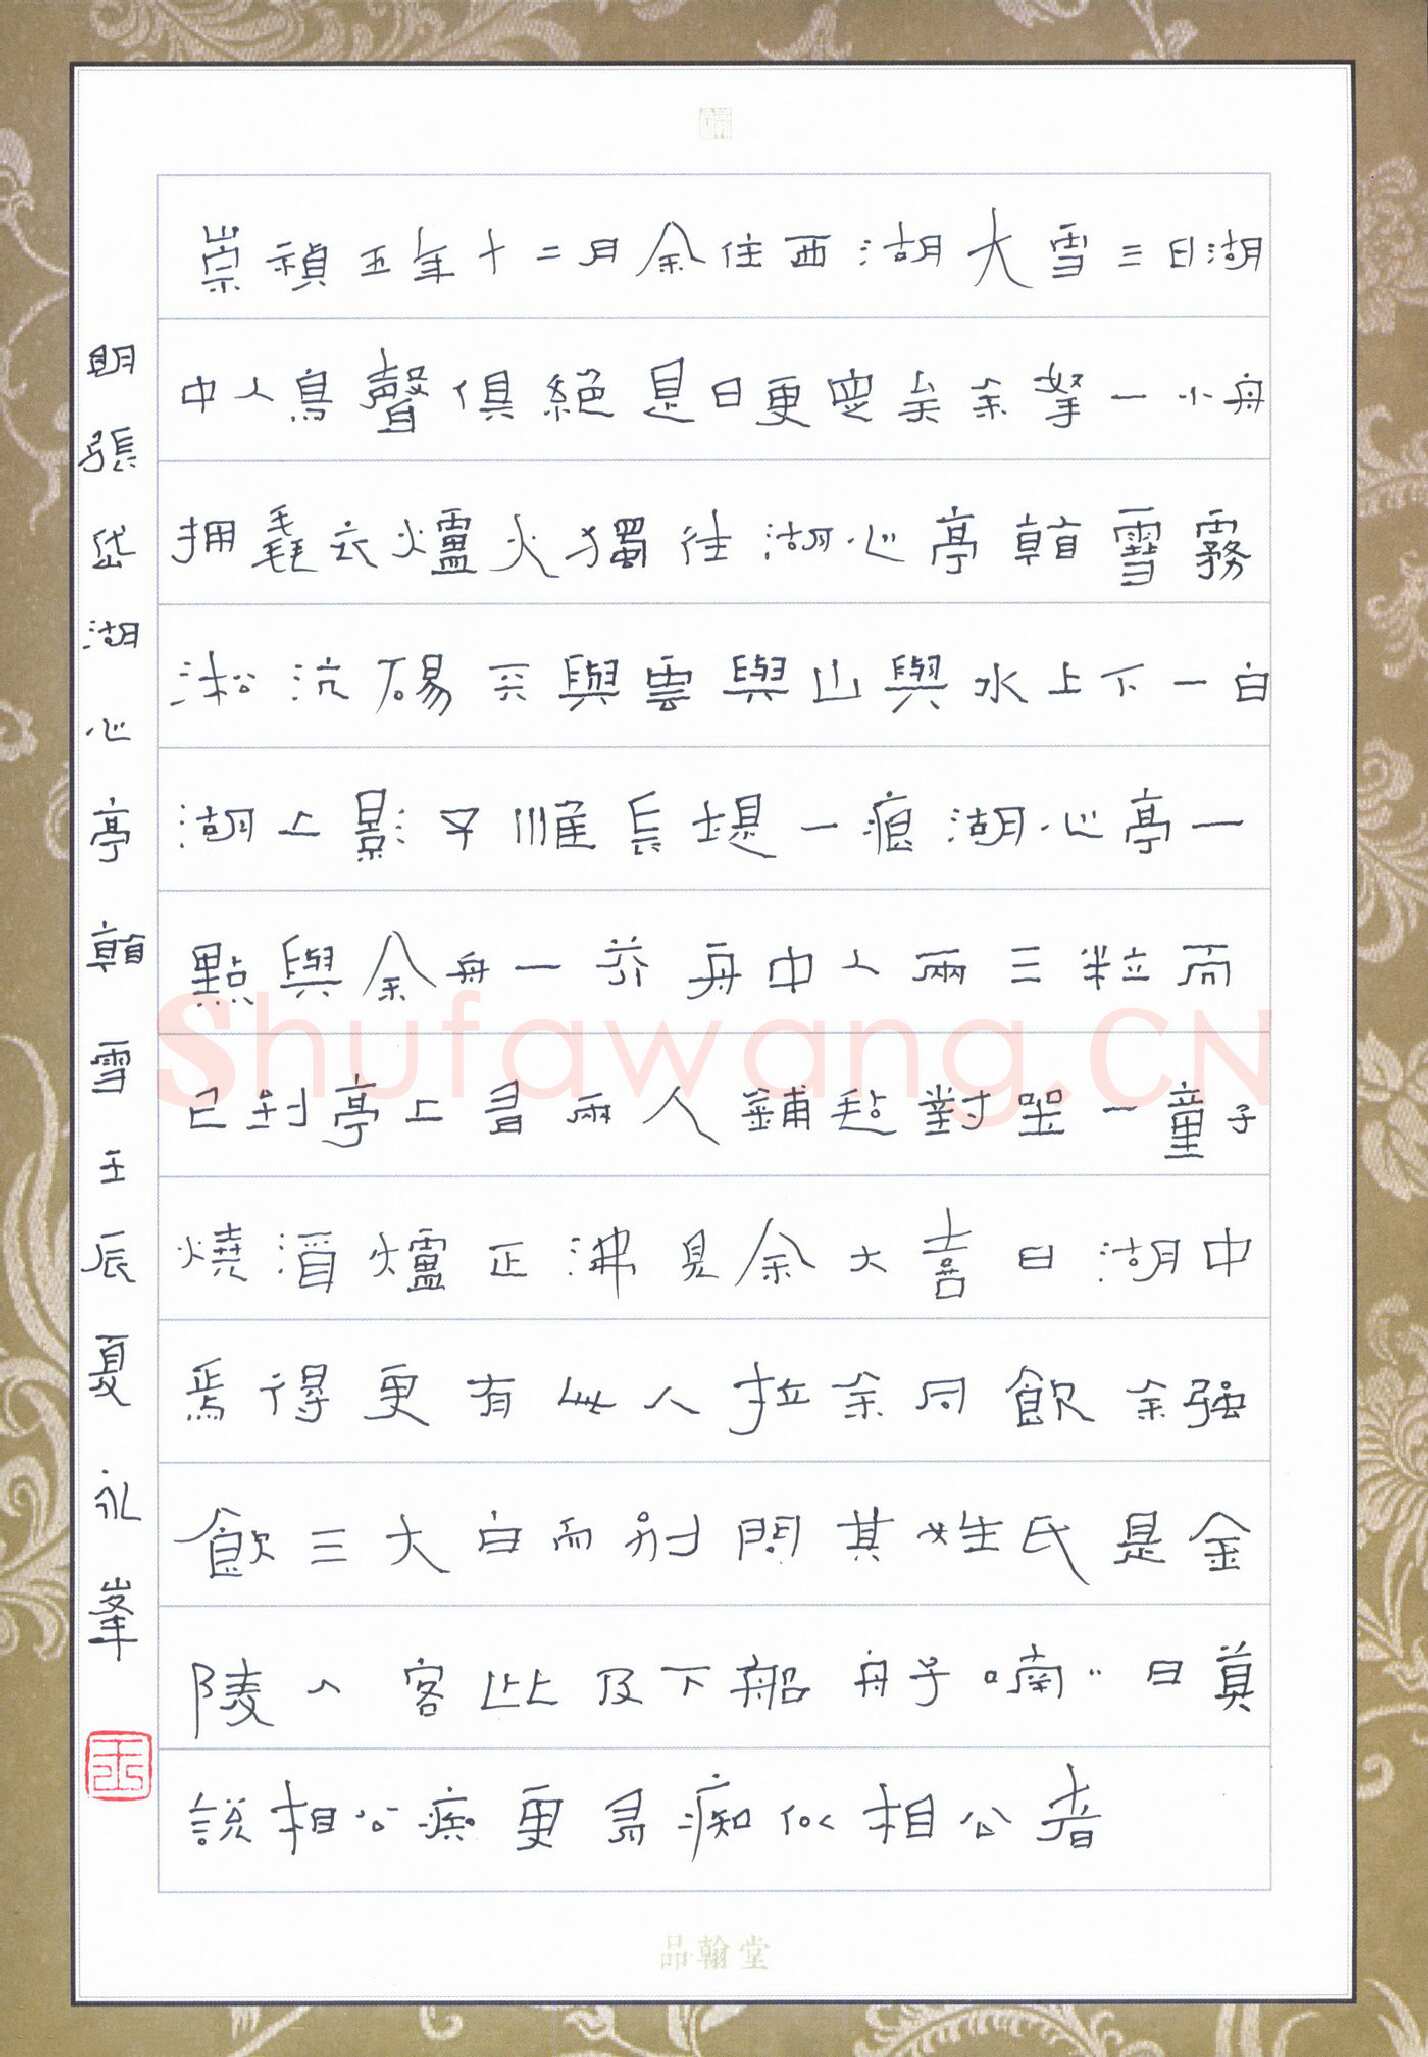 崇禎五年十二月余住西湖大雪三日湖
中人鳥聲俱絕是日更定矣余拏一小舟
拥毳衣爐火獨往湖心亭看雪霧
淞沆碭天與雲與山與水上下一白
湖上影子惟長堤一痕湖心亭一
點與余舟一芥舟中人兩三粒而
已到亭上有兩人鋪毡對坐一童子
燒酒爐正沸見余大喜曰湖中
焉得更有此人拉余同飲余强
飲三大白而別問其姓氏是金
陵人客此及下船舟子喃〃曰莫
說相公痴更有痴似相公者
明張岱湖心亭看雪壬辰夏永峯
品翰堂
Shufawang.CN